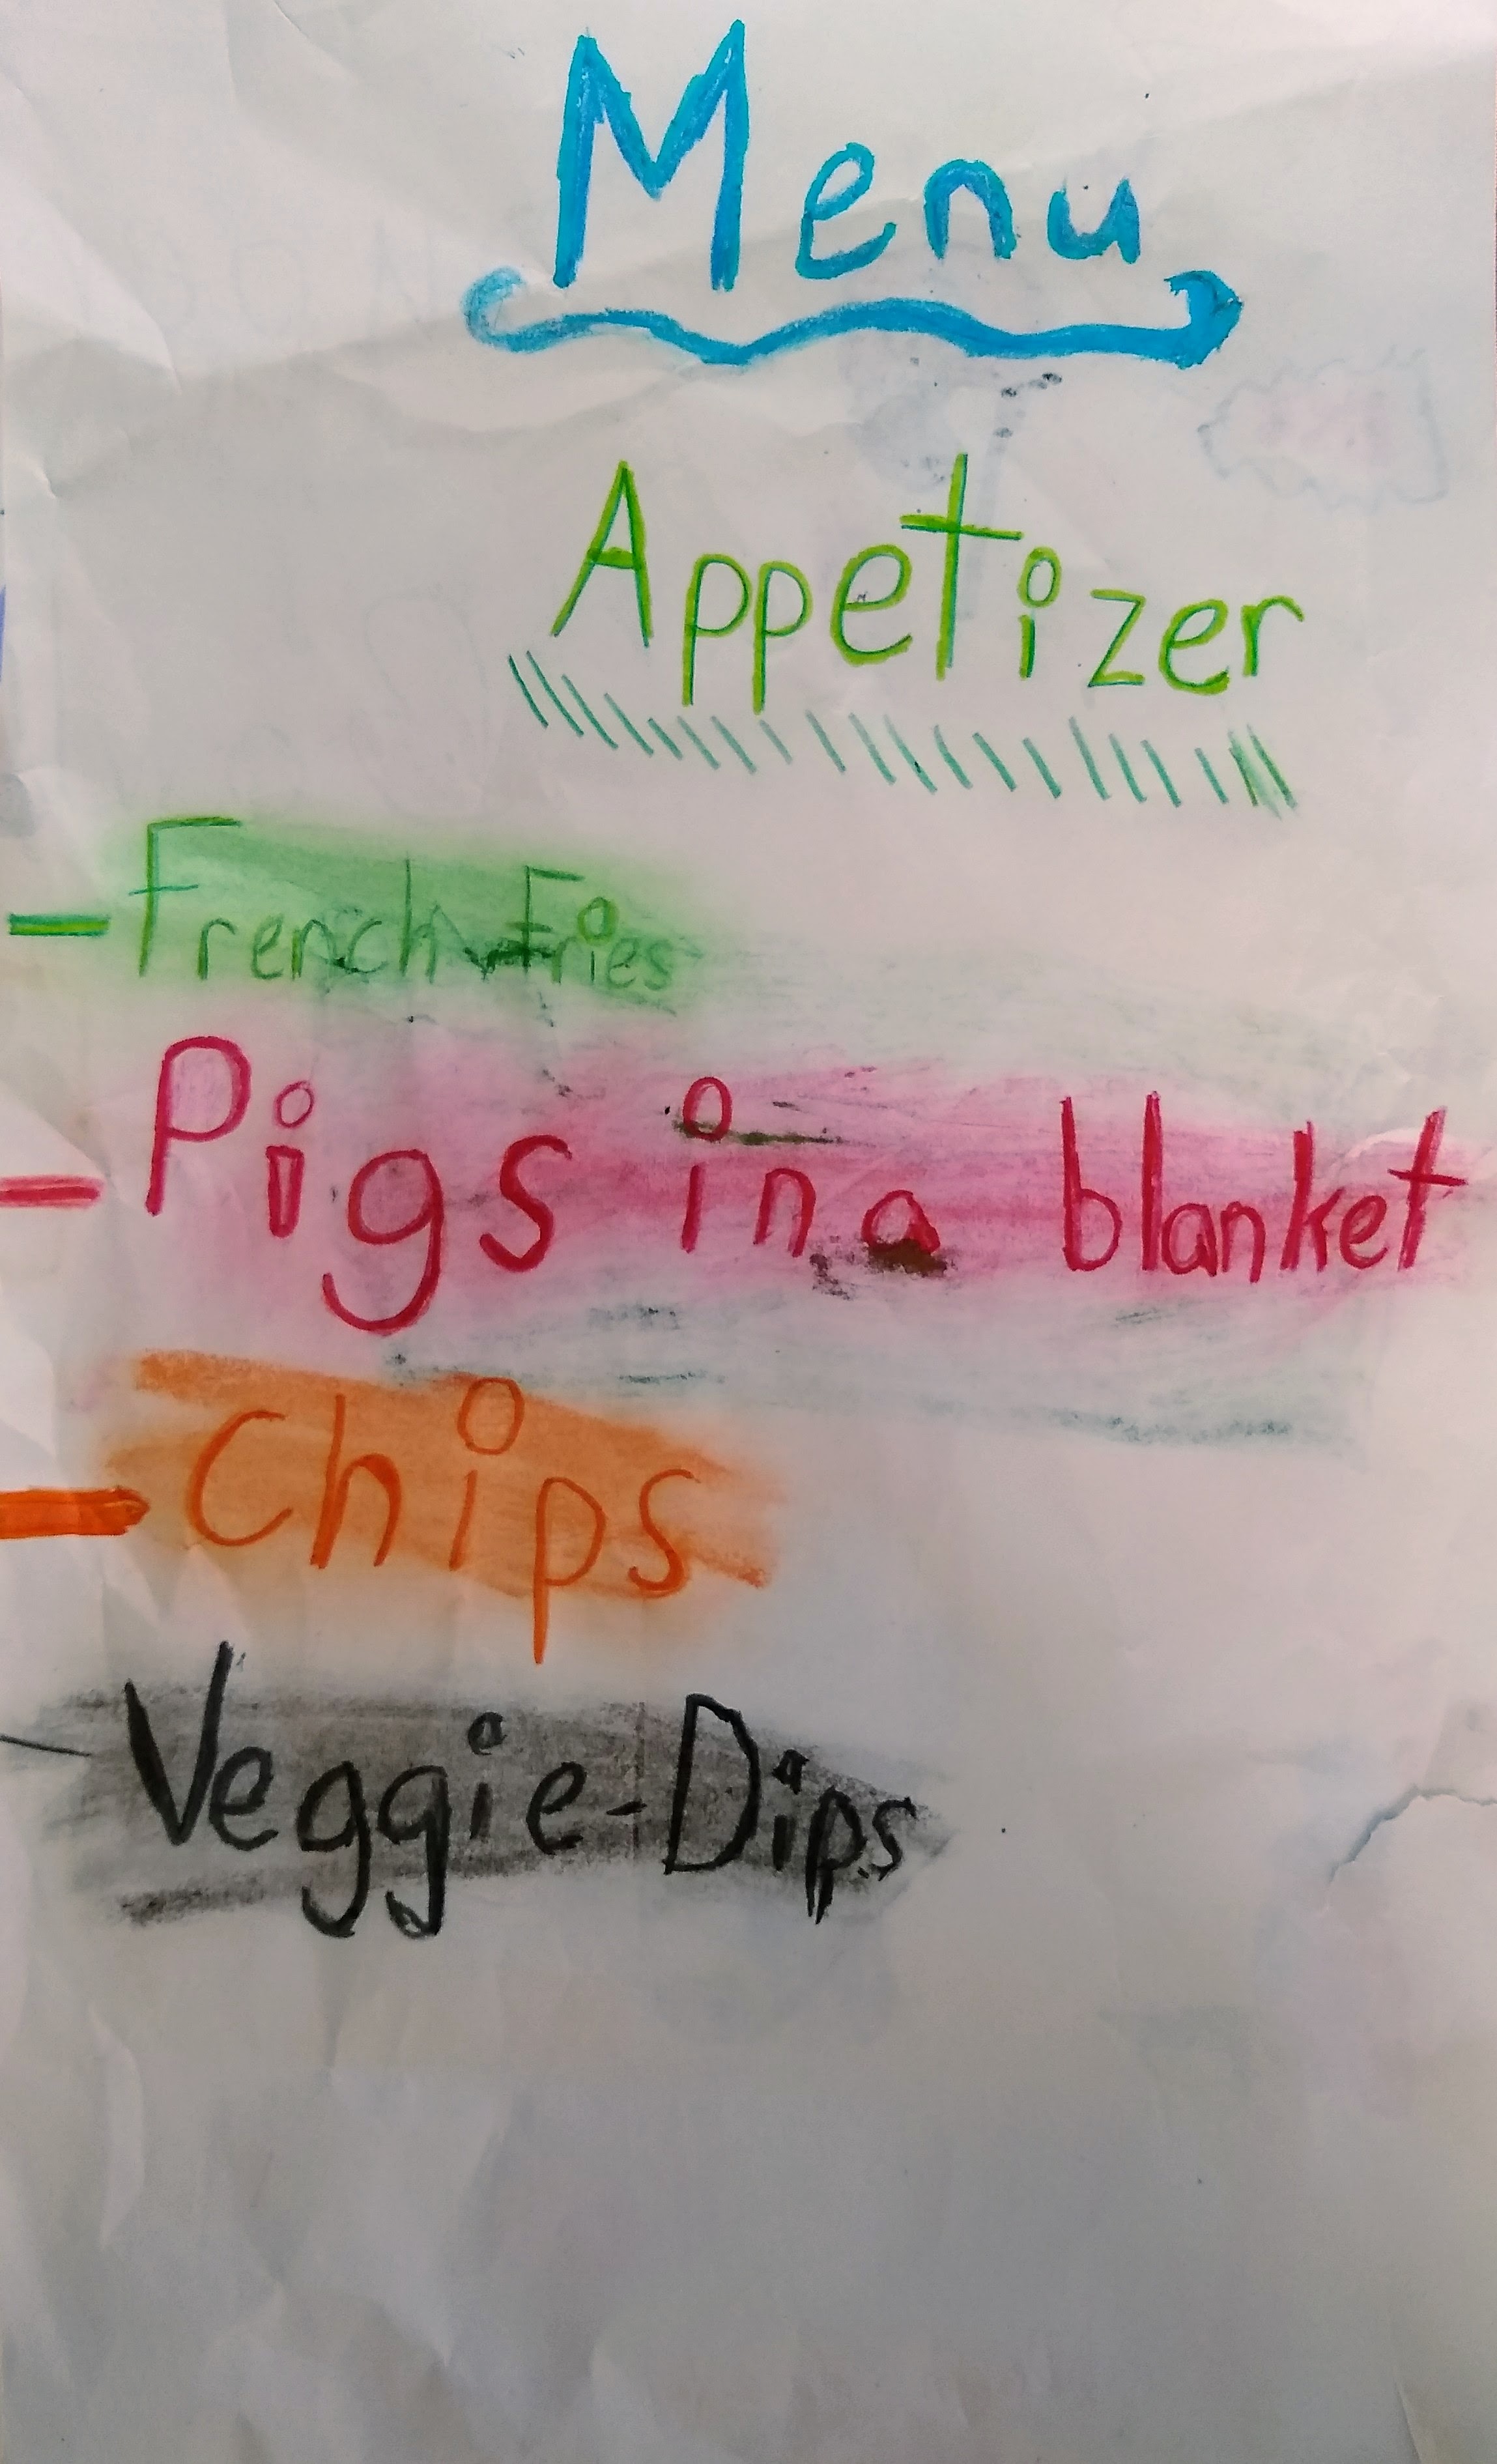 Menu
Appetizer
- French Fries
- Pigs in a blanket
- Chips
- Veggie-Dips